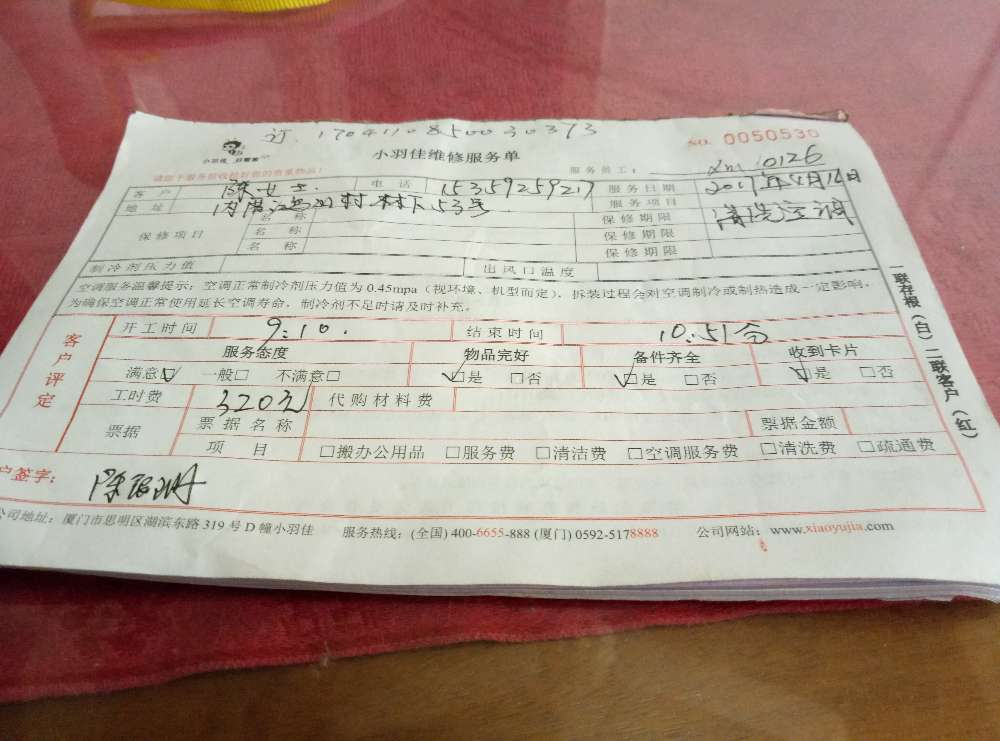 订. 1704110850030373
NO. 0050530
小羽佳 好管家
小羽佳维修服务单
服务员工: xm 10126
请您于服务前收检好您的贵重物品!
客户 陈女士. 电话 15359259217 服务日期 2017年4月16日
地址 村 村下53号 服务项目 清洗空调
保修项目 名称 保修期限
名称 保修期限
名称 保修期限
制冷剂压力值 出风口温度
空调服务温馨提示:空调正常制冷剂压力值为0.45mpa(视环境、机型而定),拆装过程会对空调制冷或制热造成一定影响,
为确保空调正常使用延长空调寿命,制冷剂不足时请及时补充。
客户评定
开工时间 9:10. 结束时间 10:51分
服务态度 物品完好 备件齐全 收到卡片
满意☑ 一般□ 不满意□ ☑是 □否 ☑是 □否 ☑是 □否
工时费 320元 代购材料费
票据 票据名称 票据金额
项目 □搬办公用品 □服务费 □清洁费 □空调服务费 □清洗费 □疏通费
户签字:
公司地址:厦门市思明区湖滨东路319号D幢小羽佳 服务热线:(全国)400-6655-888 (厦门)0592-5178888 公司网站:www.xiaoyujia.com
一联存根(白)二联客户(红)